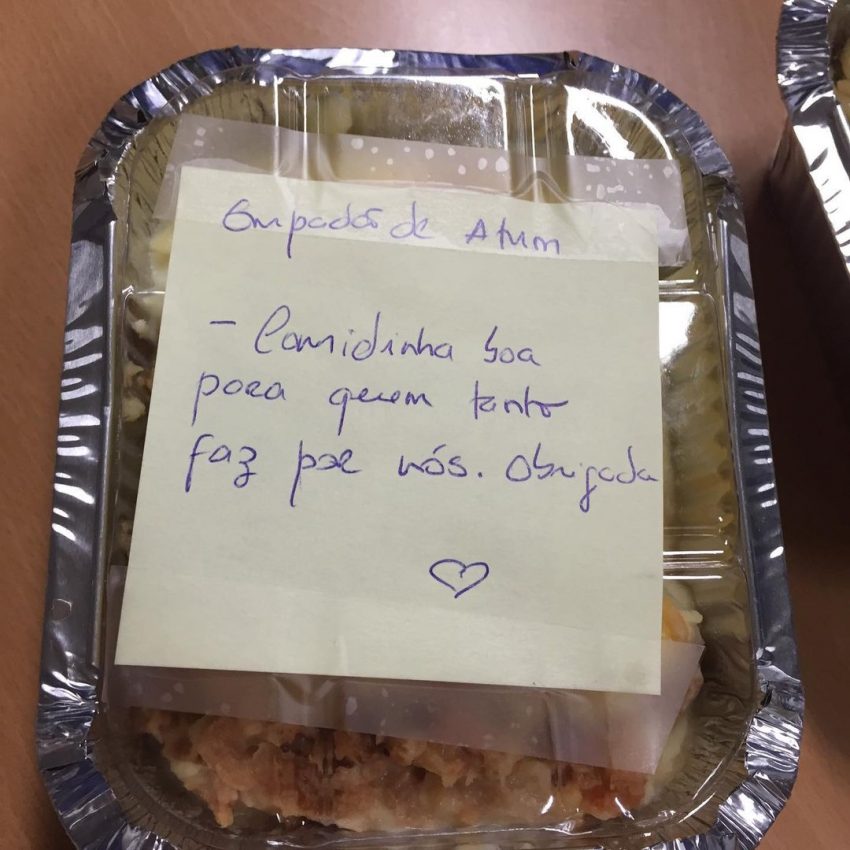 Empadão de Atum
- Comidinha boa
para quem tanto
faz por nós. Obrigada
♡